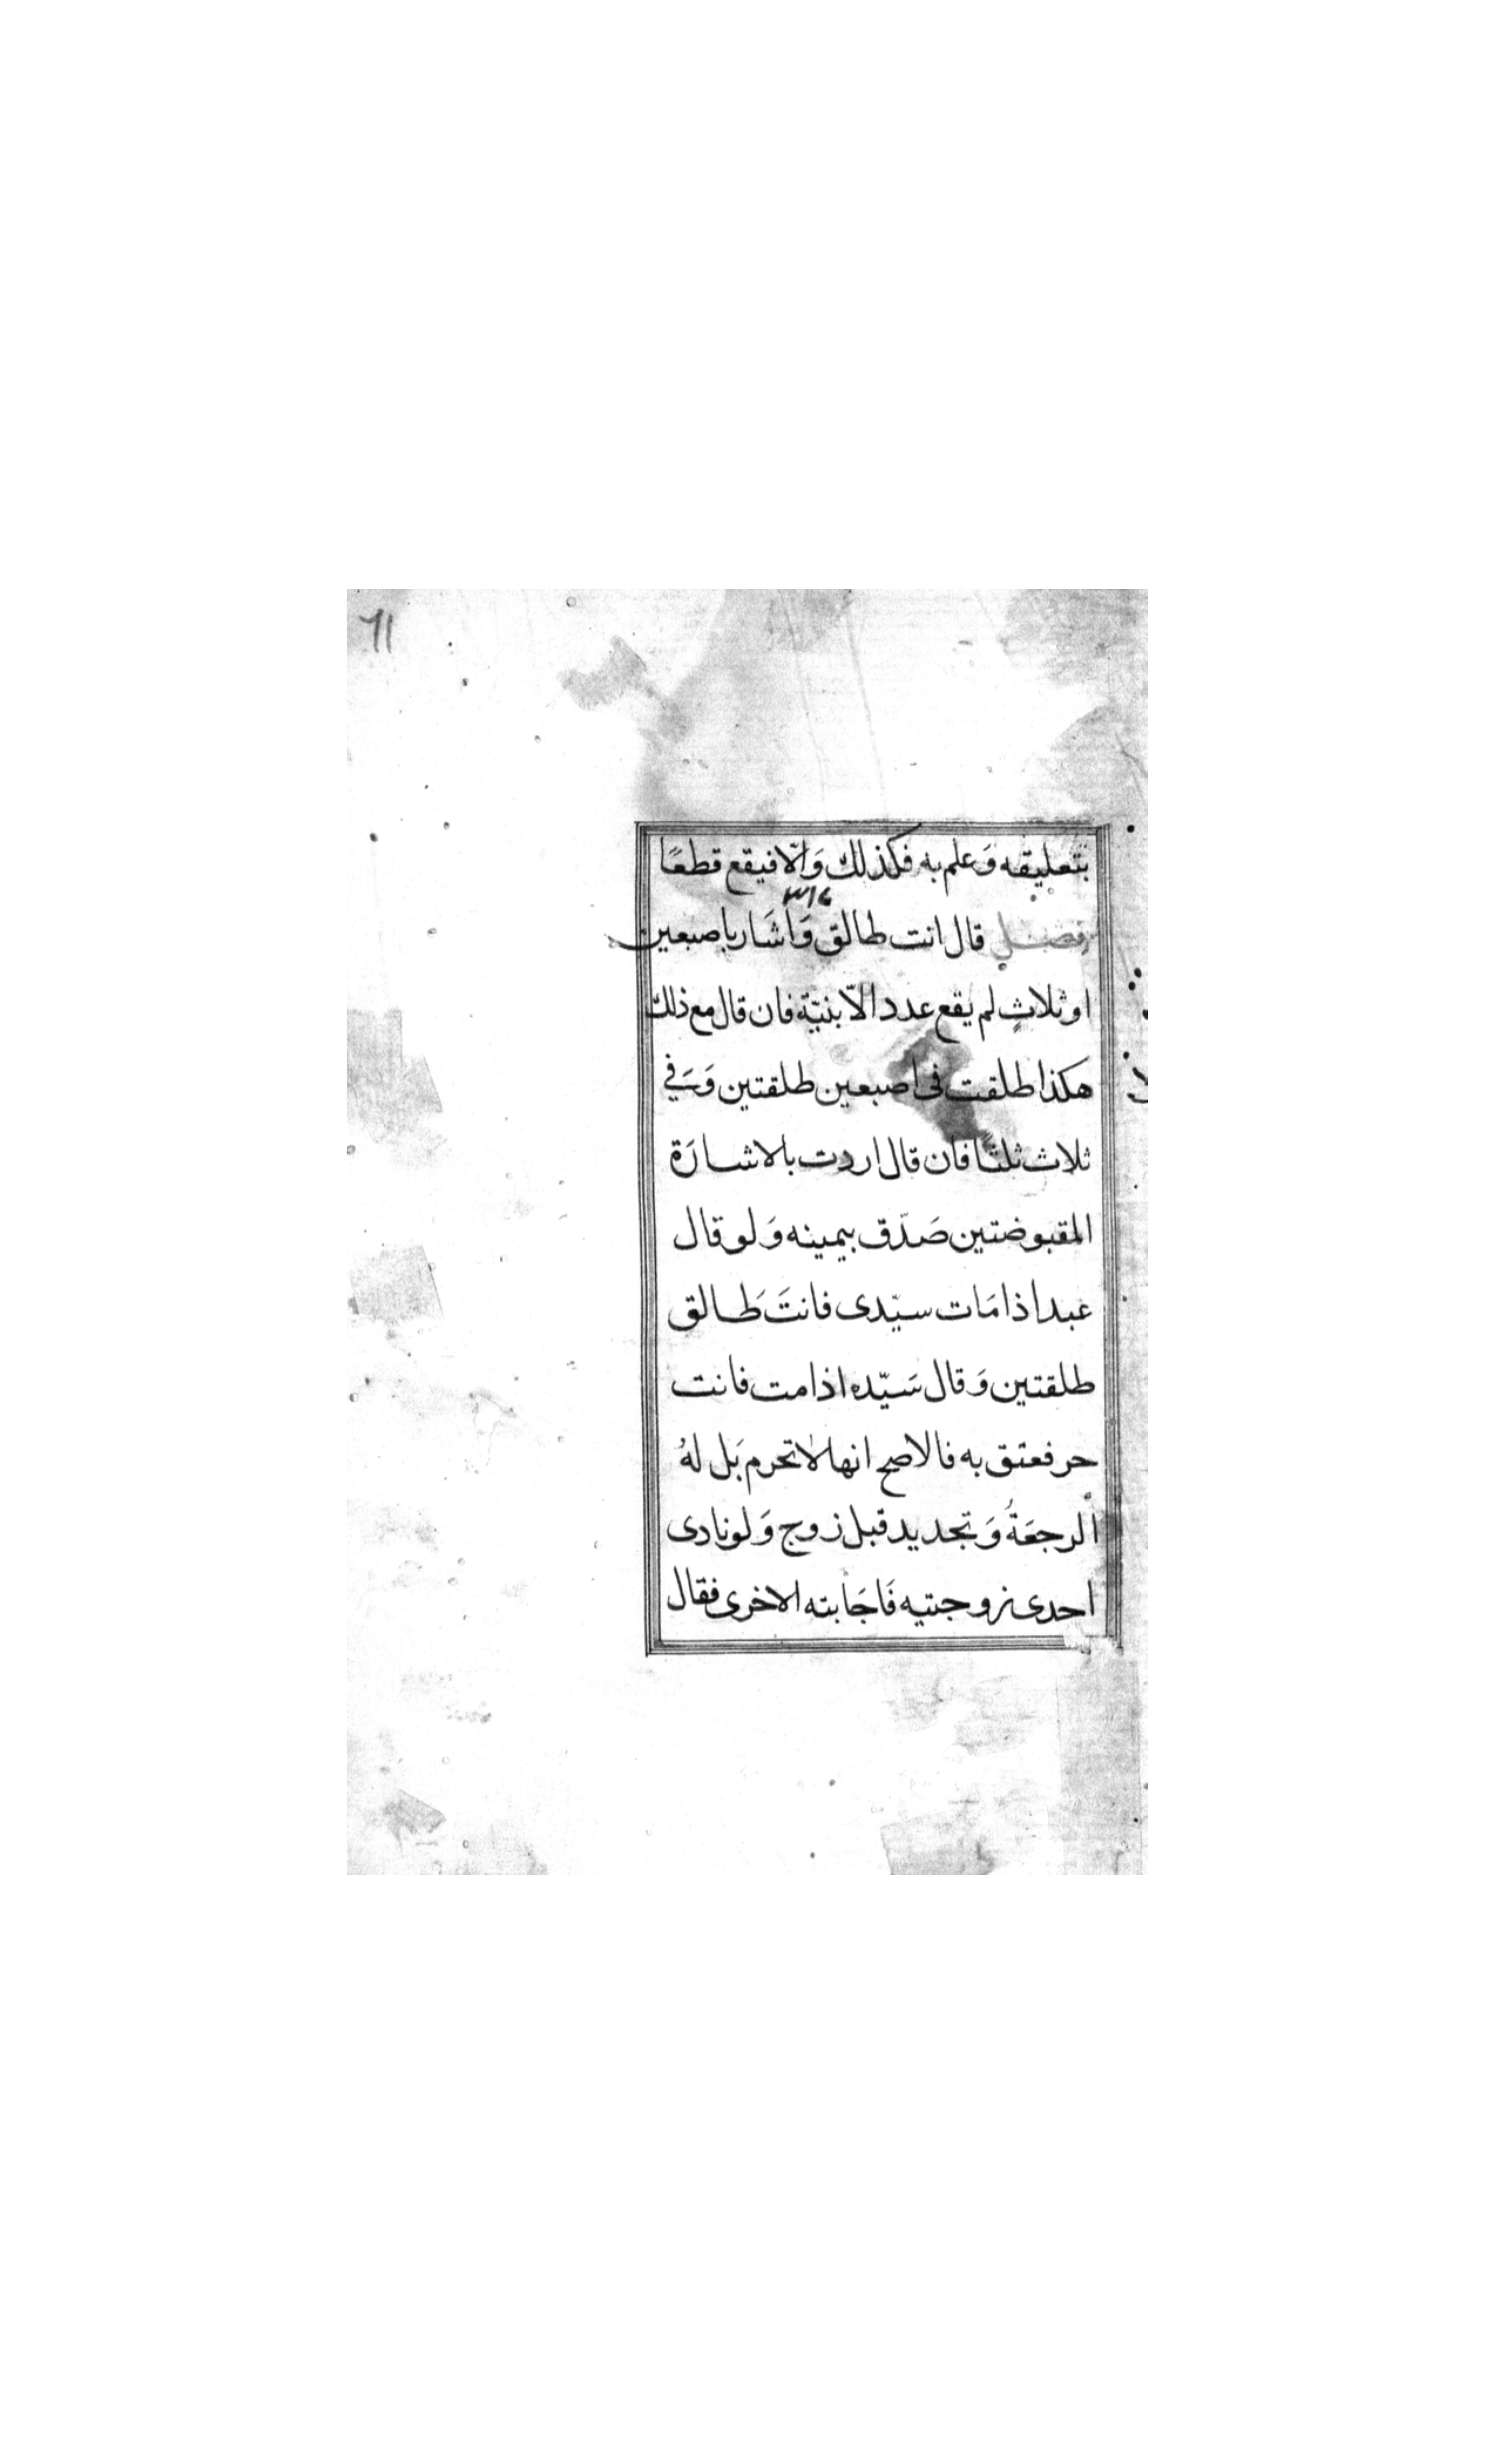 ٦١
بتعليقه وَعلم به فكذلك وَالّا فيقع قطعًا
فصل قال انت طالق وَاشَار باصبعين
او ثلاثٍ لم يقع عدد الّا بنيّة فان قال مع ذلك
هكذا طلقت فى اصبعين طلقتين وَفي
ثلاث ثلثًا فان قال اردت بالاشارَة
المقبوضتين صَدّق بيمينه وَلو قال
عبد اذا مَات سيّدى فانتَ طَالق
طلقتين وَقال سَيّده اذا مت فانت
حر فعتق به فالاصح انها لا تحرم بَل لهُ
الرجعَةُ وَتجديد قبل زوج وَلو نادى
احدى زوجتيه فَاجَابته الاخرى فقال